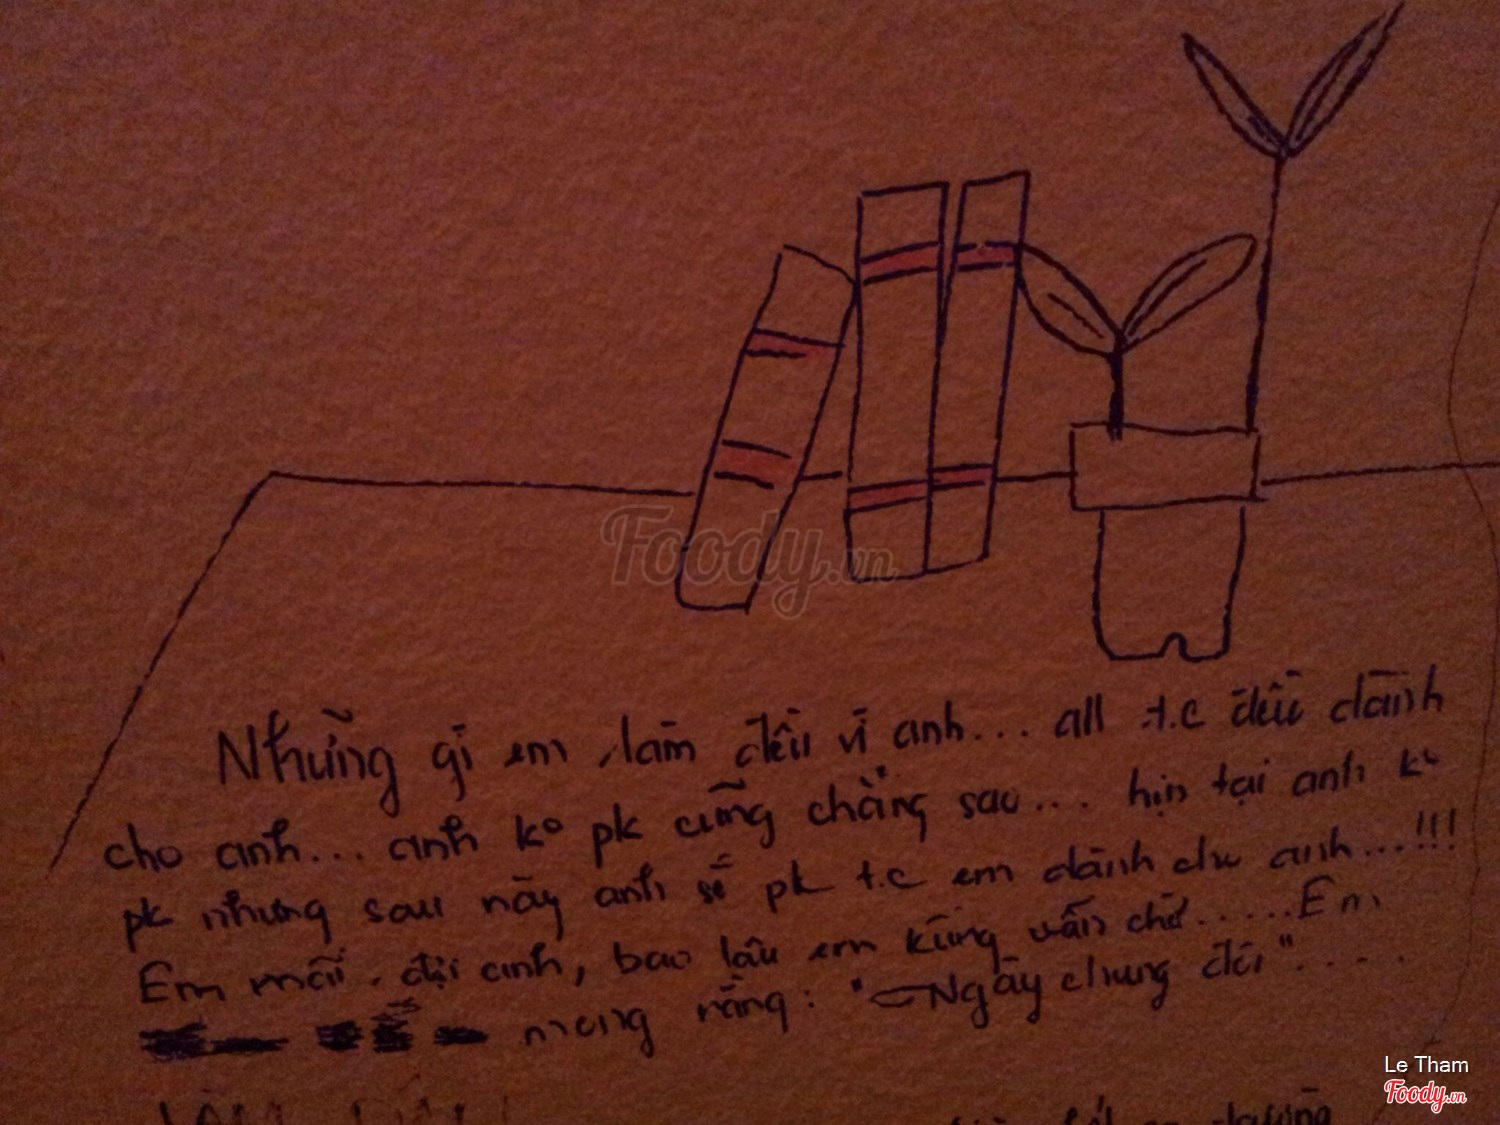 Foody.vn
Những gì em làm đều vì anh... all t.c đều dành
cho anh... anh ko pk cũng chẳng sao... hịn tại anh ko
pk nhưng sau này anh sẽ pk t.c em dành cho anh...!!!
Em mãi đợi anh, bao lâu em kũng vẫn chờ.....Em
mong rằng: "Ngày chung đôi"....
Le Tham
Foody.vn